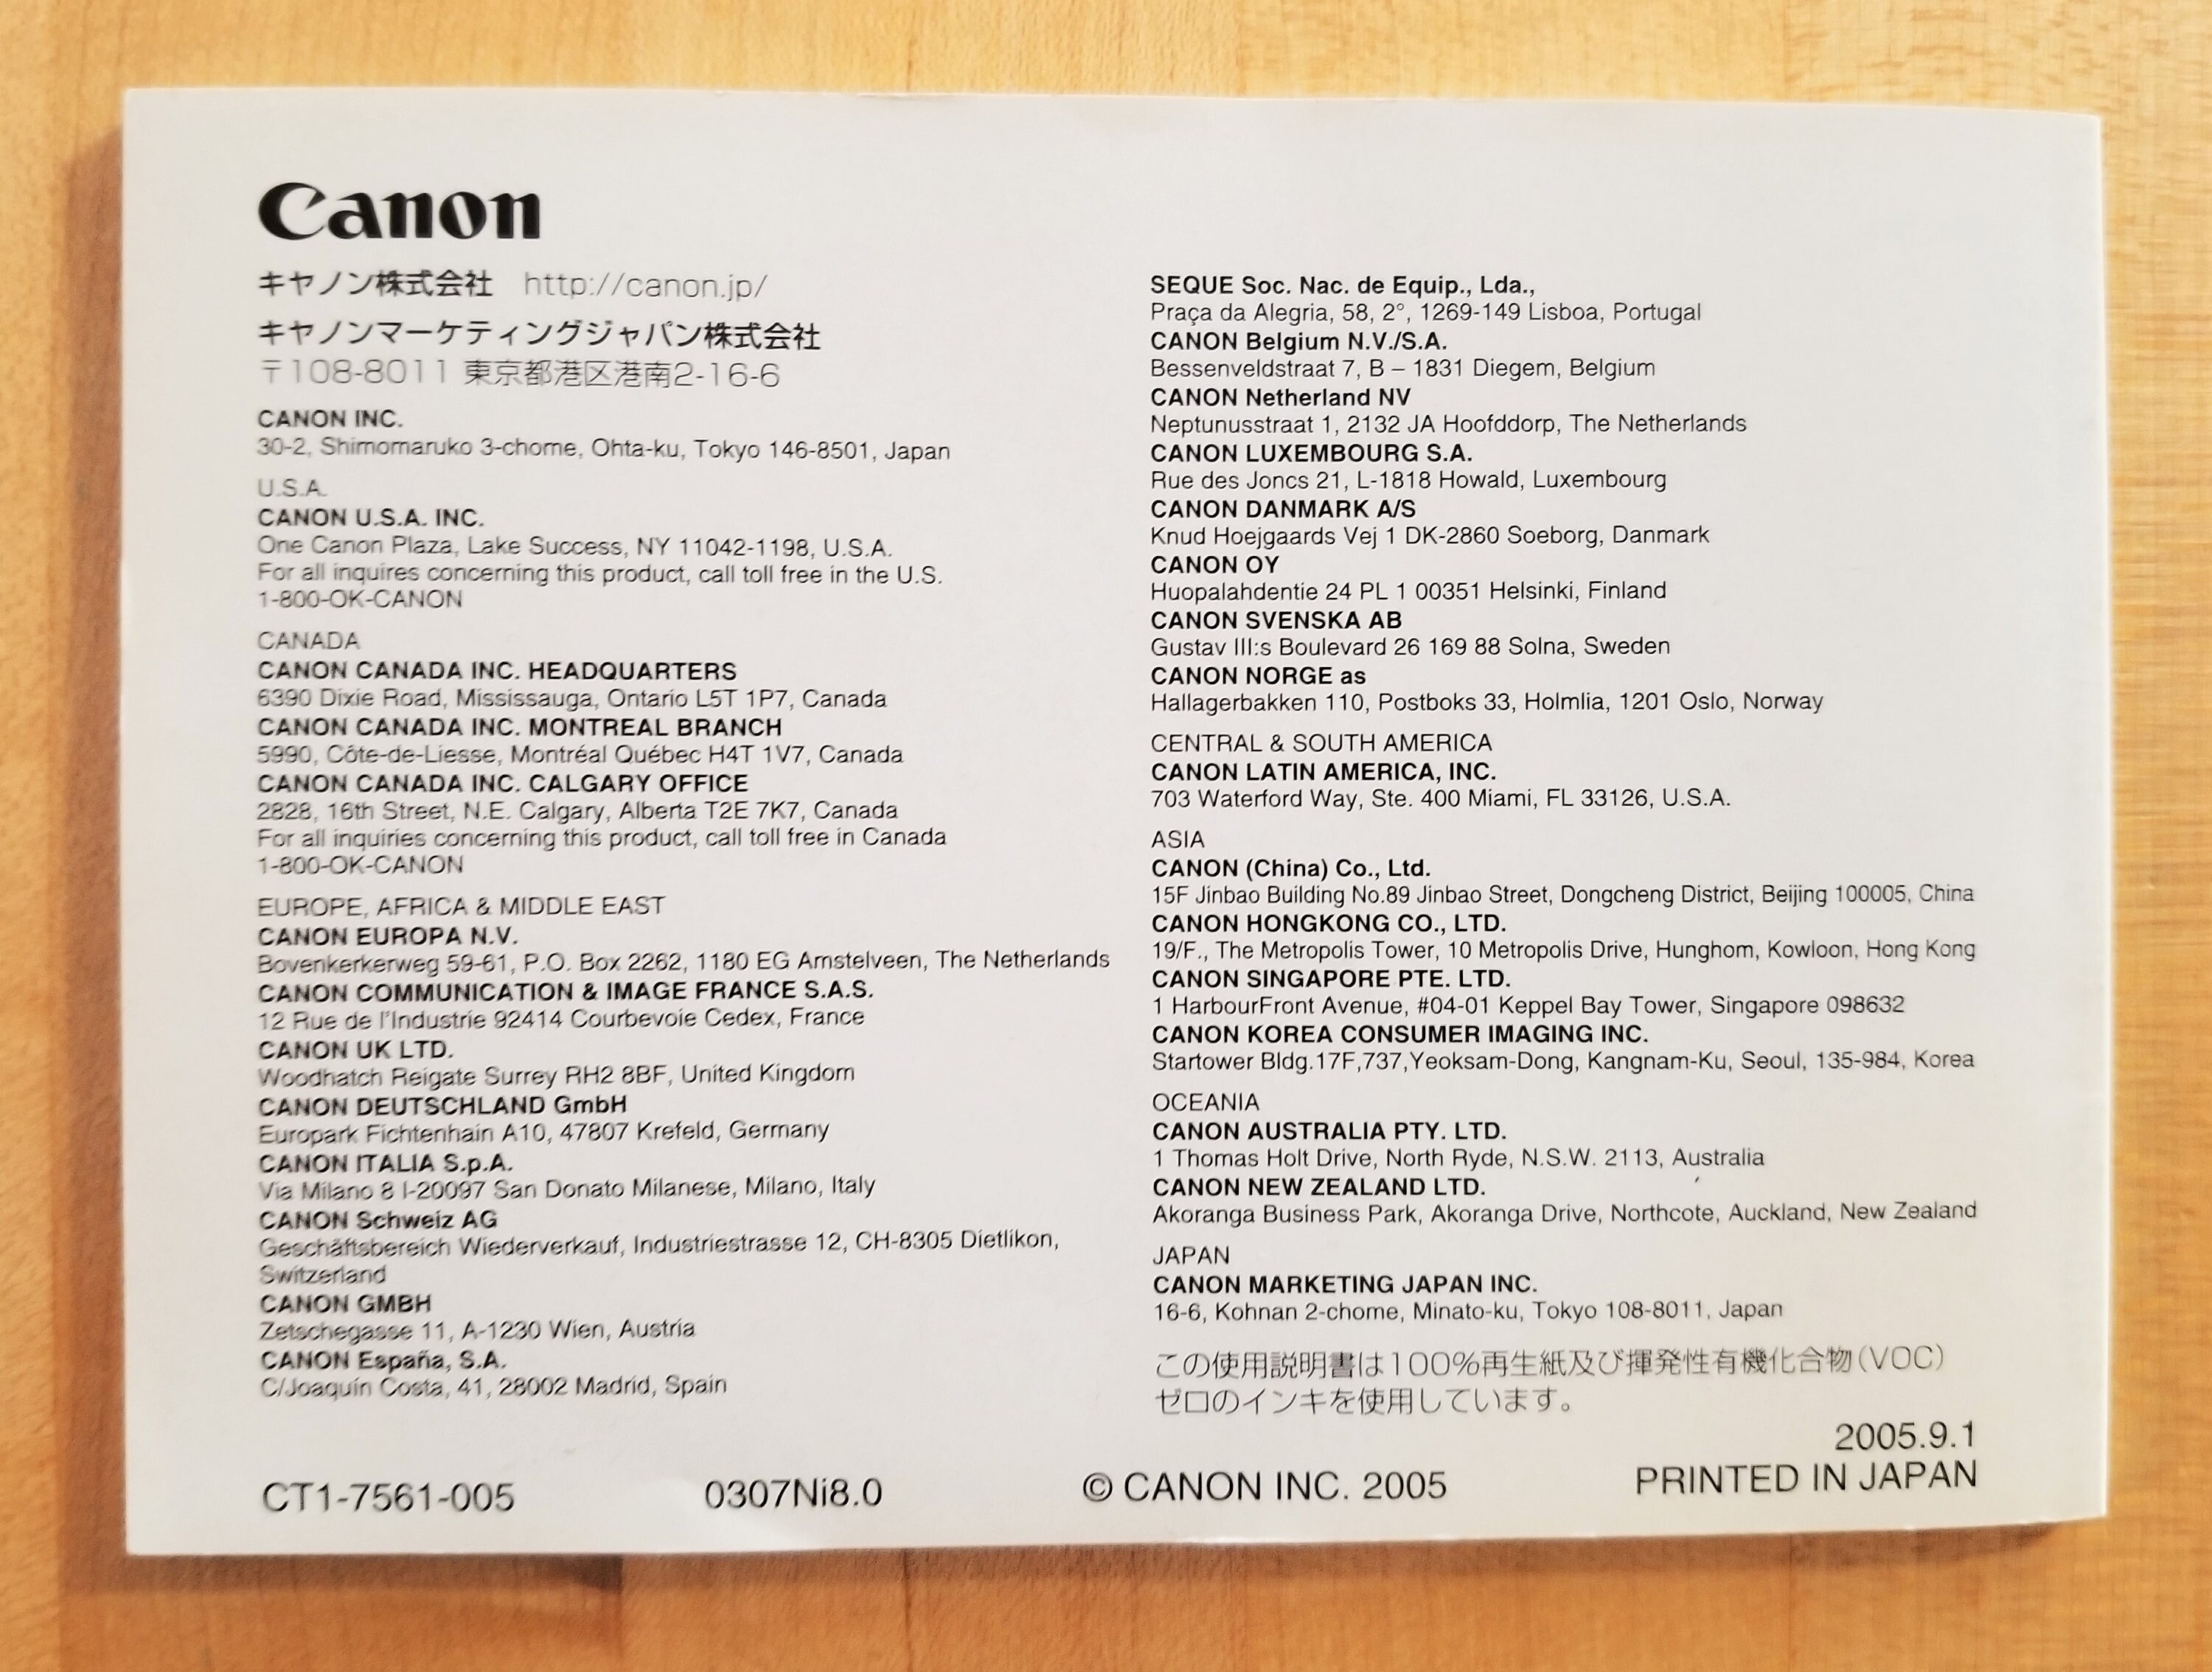 Canon
キヤノン株式会社 http://canon.jp/
キヤノンマーケティングジャパン株式会社
〒108-8011 東京都港区港南2-16-6
CANON INC.
30-2, Shimomaruko 3-chome, Ohta-ku, Tokyo 146-8501, Japan
U.S.A.
CANON U.S.A. INC.
One Canon Plaza, Lake Success, NY 11042-1198, U.S.A.
For all inquires concerning this product, call toll free in the U.S.
1-800-OK-CANON
CANADA
CANON CANADA INC. HEADQUARTERS
6390 Dixie Road, Mississauga, Ontario L5T 1P7, Canada
CANON CANADA INC. MONTREAL BRANCH
5990, Côte-de-Liesse, Montréal Québec H4T 1V7, Canada
CANON CANADA INC. CALGARY OFFICE
2828, 16th Street, N.E. Calgary, Alberta T2E 7K7, Canada
For all inquiries concerning this product, call toll free in Canada
1-800-OK-CANON
EUROPE, AFRICA & MIDDLE EAST
CANON EUROPA N.V.
Bovenkerkerweg 59-61, P.O. Box 2262, 1180 EG Amstelveen, The Netherlands
CANON COMMUNICATION & IMAGE FRANCE S.A.S.
12 Rue de l'Industrie 92414 Courbevoie Cedex, France
CANON UK LTD.
Woodhatch Reigate Surrey RH2 8BF, United Kingdom
CANON DEUTSCHLAND GmbH
Europark Fichtenhain A10, 47807 Krefeld, Germany
CANON ITALIA S.p.A.
Via Milano 8 I-20097 San Donato Milanese, Milano, Italy
CANON Schweiz AG
Geschäftsbereich Wiederverkauf, Industriestrasse 12, CH-8305 Dietlikon,
Switzerland
CANON GMBH
Zetschegasse 11, A-1230 Wien, Austria
CANON España, S.A.
C/Joaquín Costa, 41, 28002 Madrid, Spain
SEQUE Soc. Nac. de Equip., Lda.,
Praça da Alegria, 58, 2°, 1269-149 Lisboa, Portugal
CANON Belgium N.V./S.A.
Bessenveldstraat 7, B – 1831 Diegem, Belgium
CANON Netherland NV
Neptunusstraat 1, 2132 JA Hoofddorp, The Netherlands
CANON LUXEMBOURG S.A.
Rue des Joncs 21, L-1818 Howald, Luxembourg
CANON DANMARK A/S
Knud Hoejgaards Vej 1 DK-2860 Soeborg, Danmark
CANON OY
Huopalahdentie 24 PL 1 00351 Helsinki, Finland
CANON SVENSKA AB
Gustav III:s Boulevard 26 169 88 Solna, Sweden
CANON NORGE as
Hallagerbakken 110, Postboks 33, Holmlia, 1201 Oslo, Norway
CENTRAL & SOUTH AMERICA
CANON LATIN AMERICA, INC.
703 Waterford Way, Ste. 400 Miami, FL 33126, U.S.A.
ASIA
CANON (China) Co., Ltd.
15F Jinbao Building No.89 Jinbao Street, Dongcheng District, Beijing 100005, China
CANON HONGKONG CO., LTD.
19/F., The Metropolis Tower, 10 Metropolis Drive, Hunghom, Kowloon, Hong Kong
CANON SINGAPORE PTE. LTD.
1 HarbourFront Avenue, #04-01 Keppel Bay Tower, Singapore 098632
CANON KOREA CONSUMER IMAGING INC.
Startower Bldg.17F,737,Yeoksam-Dong, Kangnam-Ku, Seoul, 135-984, Korea
OCEANIA
CANON AUSTRALIA PTY. LTD.
1 Thomas Holt Drive, North Ryde, N.S.W. 2113, Australia
CANON NEW ZEALAND LTD.
Akoranga Business Park, Akoranga Drive, Northcote, Auckland, New Zealand
JAPAN
CANON MARKETING JAPAN INC.
16-6, Kohnan 2-chome, Minato-ku, Tokyo 108-8011, Japan
この使用説明書は100%再生紙及び揮発性有機化合物(VOC)
ゼロのインキを使用しています。
2005.9.1
CT1-7561-005 0307Ni8.0 © CANON INC. 2005 PRINTED IN JAPAN